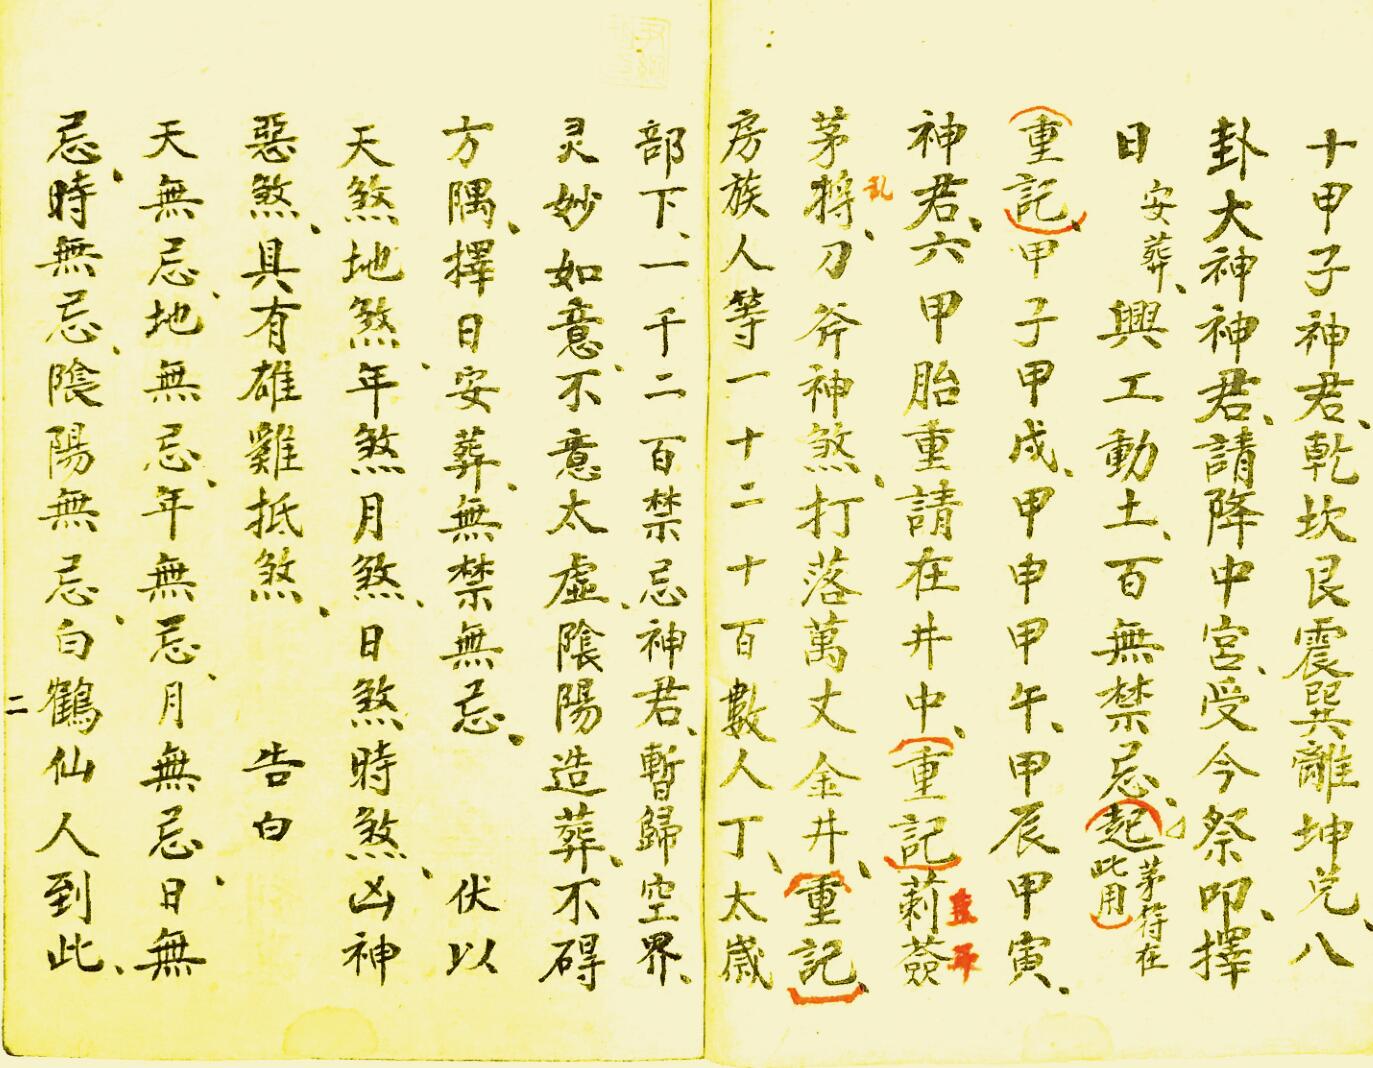 十甲子神君乾坎艮震巽離坤兌八
卦大神神君請降中宮受今祭叩擇
日安葬興工動土百無禁忌起茅符在此用
重記甲子甲戌甲申甲午甲辰甲寅
神君六甲胎重請在井中重記莿簽
茅將刀斧神煞打落萬丈金井重記
乱
房族人等一十二十百數人丁太歲
部下一千二百禁忌神君暫歸空界
灵妙如意不意太虛陰陽造葬不碍
方隅擇日安葬無禁無忌 伏以
天煞地煞年煞月煞日煞時煞凶神
惡煞具有雄雞抵煞 告白
天無忌地無忌年無忌月無忌日無
忌時無忌陰陽無忌白鶴仙人到此
二